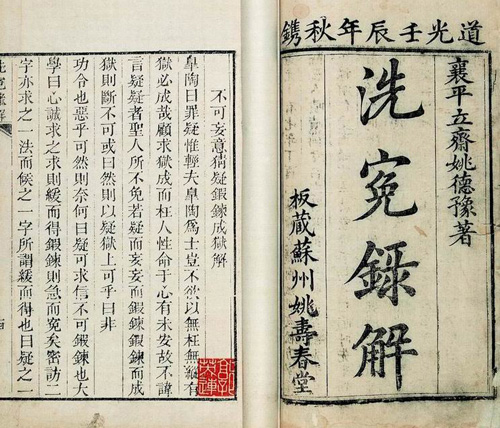 道光壬辰年秋鐫
襄平立齋姚德豫著
洗寃錄解
板藏蘇州姚壽春堂
不可妄意猜疑鍛鍊成獄解
皐陶曰罪疑惟輕夫皐陶爲士豈不欲以無枉無縱有
獄必成哉顧求獄成而枉人性命于心有未安故不諱
言疑疑者聖人所不免若疑而妄妄而鍛鍊鍛鍊而成
獄則斷不可或曰然則以疑獄上可乎曰非
功令也惡乎可然則奈何曰疑可求信不可鍛鍊也大
學曰心誠求之求則緩而得鍛鍊則急而寃矣密訪二
字亦求之一法而候之一字所謂緩而得也曰疑之一
洗寃錄解